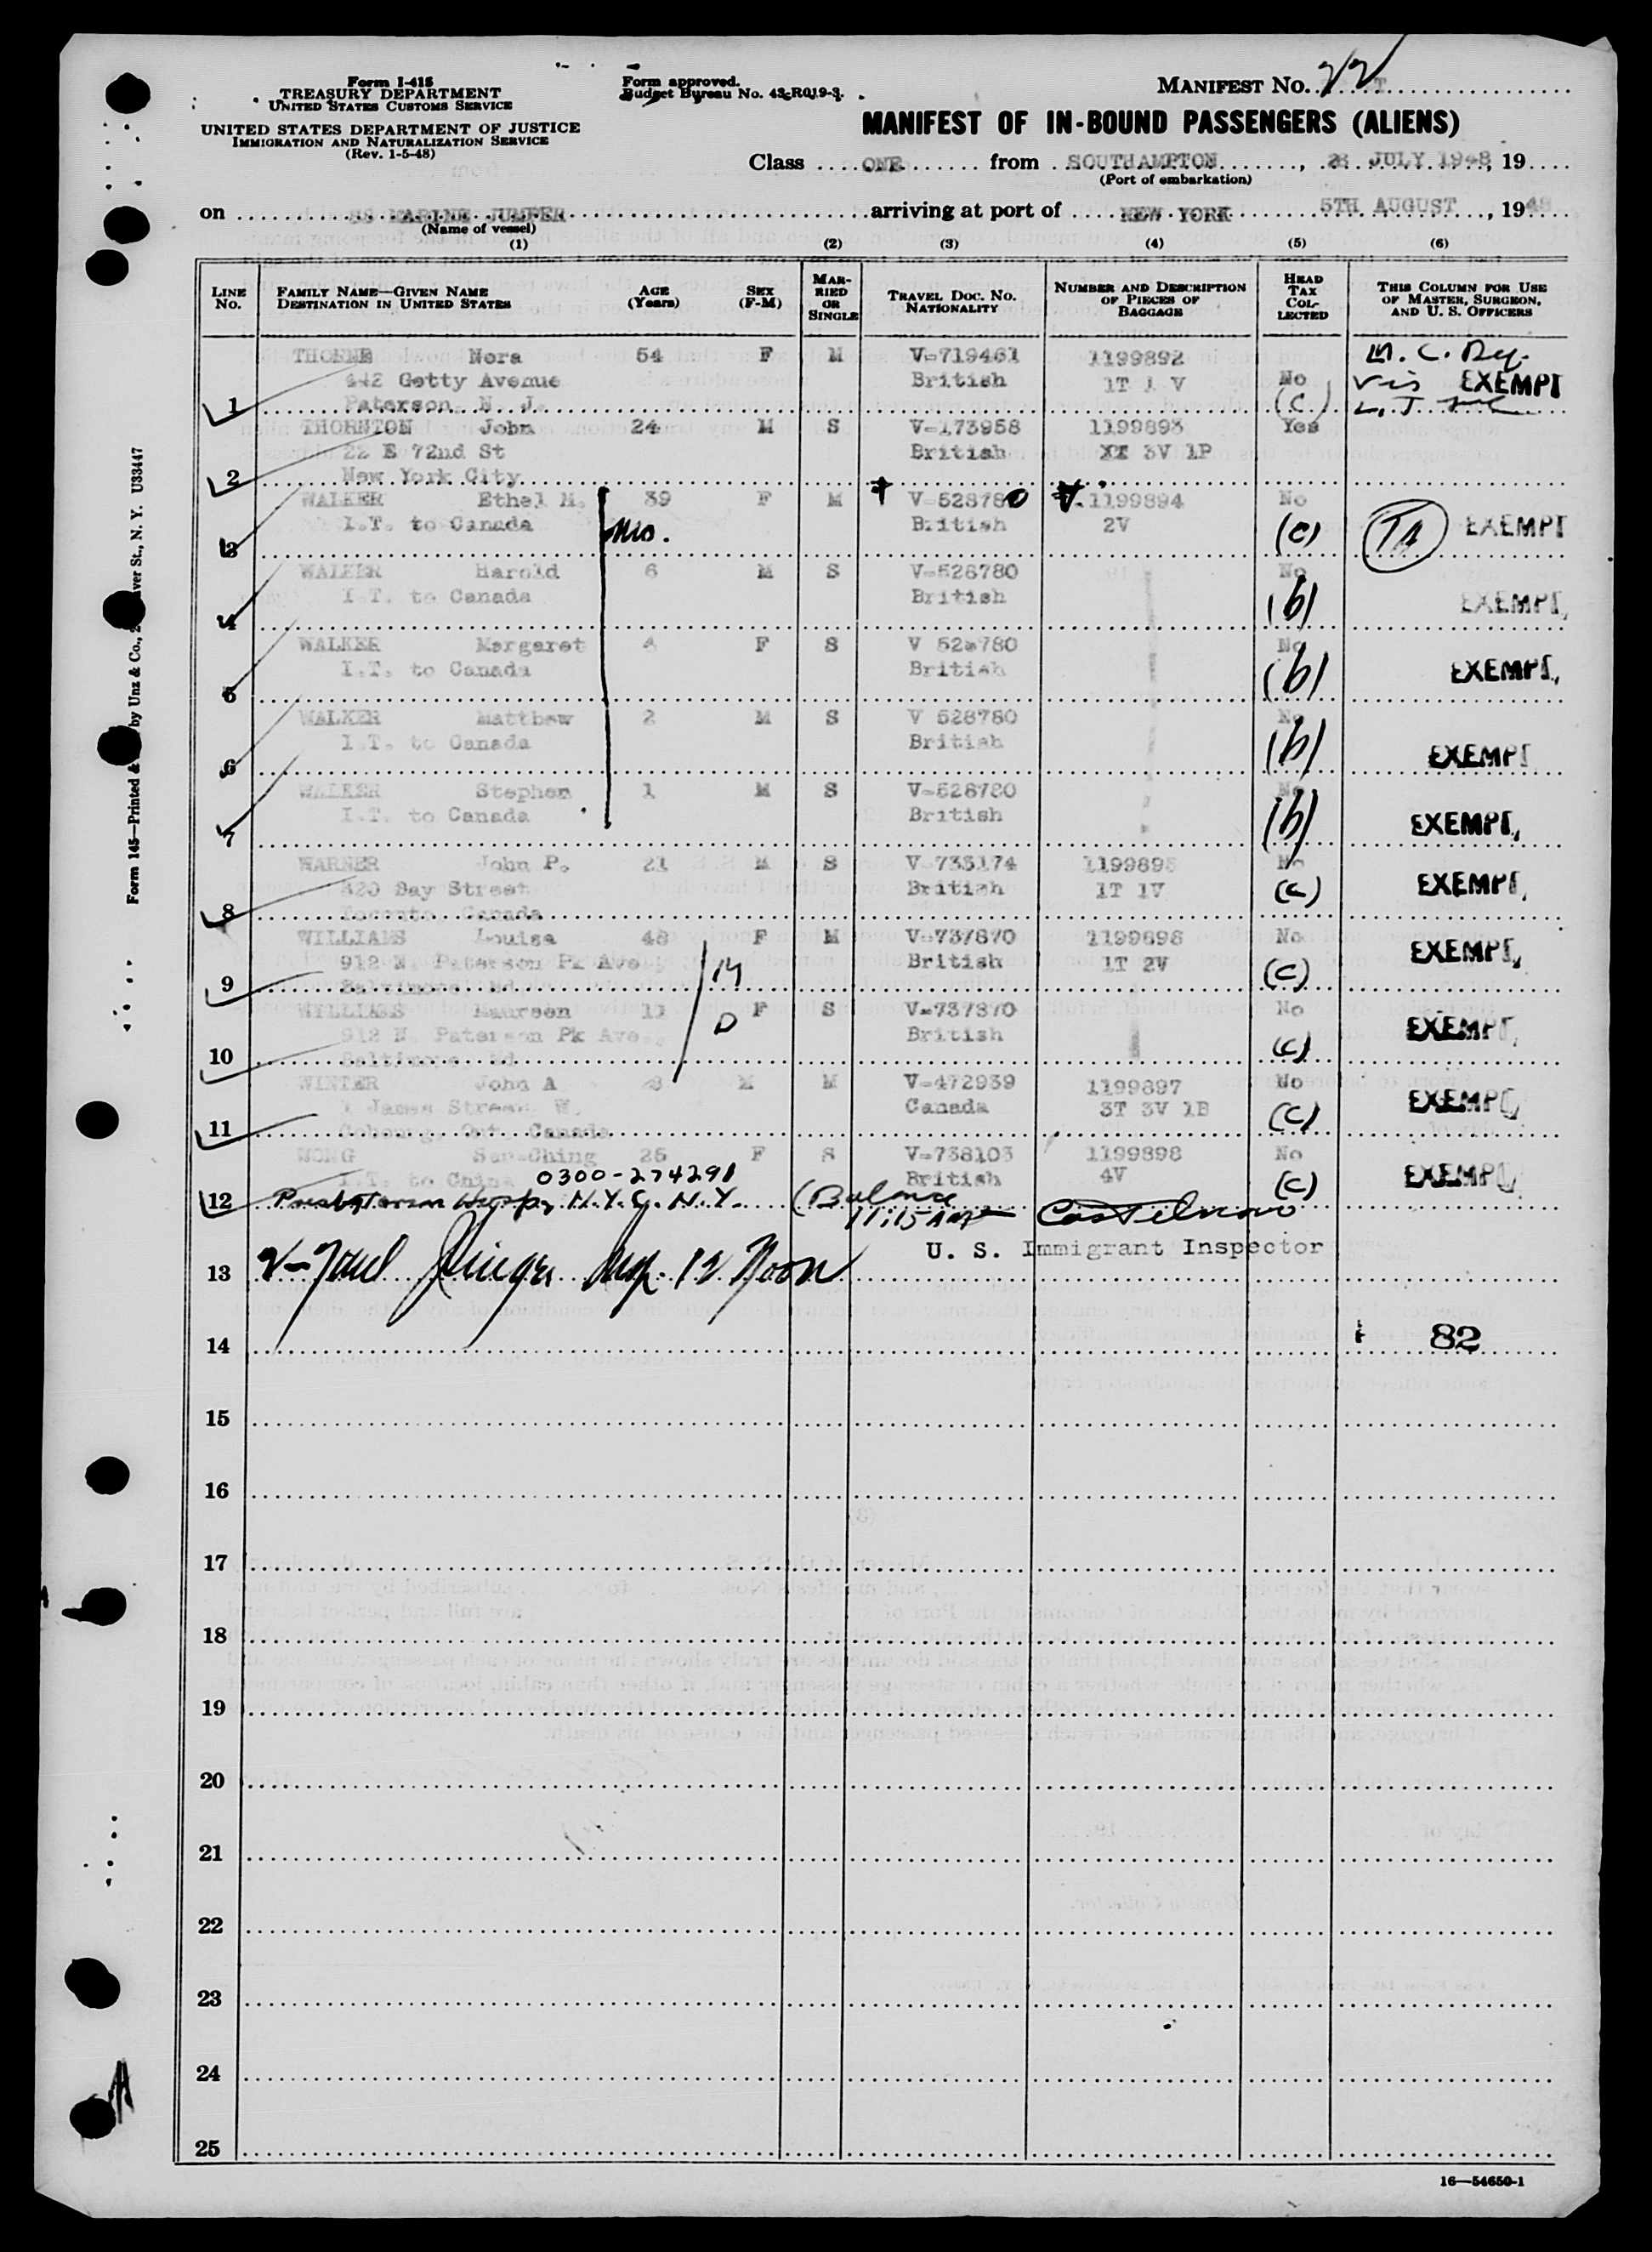 Form I-415
TREASURY DEPARTMENT
UNITED STATES CUSTOMS SERVICE
UNITED STATES DEPARTMENT OF JUSTICE
IMMIGRATION AND NATURALIZATION SERVICE
(Rev. 1-5-48)
Form approved.
Budget Bureau No. 43-R019-3.
MANIFEST NO. 22
MANIFEST OF IN-BOUND PASSENGERS (ALIENS)
Class ONE from SOUTHAMPTON, 28 JULY 1948, 19
(Port of embarkation)
on SS MARINE JUMPER arriving at port of NEW YORK 5TH AUGUST, 1948
(Name of vessel)
(1) (2) (3) (4) (5) (6)
LINE NO. FAMILY NAME—GIVEN NAME DESTINATION IN UNITED STATES AGE (Years) SEX (F-M) MARRIED OR SINGLE TRAVEL DOC. NO. NATIONALITY NUMBER AND DESCRIPTION OF PIECES OF BAGGAGE HEAD TAX COLLECTED THIS COLUMN FOR USE OF MASTER, SURGEON, AND U. S. OFFICERS
THORNE Nora 54 F M V-719461 1199892 M. C.
442 Getty Avenue British 1T 1 V No EXEMPT
1 Paterson N. J. (C)
THORNTON John 24 M S V-173958 1199893 Yes
22 E 72nd St British XX 3V 1P
2 New York City
WALKER Ethel M. 39 F M V-528780 V. 1199894 No
I.T. to Canada British 2V (C) EXEMPT
3
WALKER Harold 6 M S V-528780 No
I.T. to Canada British (b) EXEMPT
4
WALKER Margaret 4 F S V 528780 No
I.T. to Canada British (b) EXEMPT
5
WALKER Matthew 2 M S V 528780 No
I.T. to Canada British (b) EXEMPT
6
WALKER Stephen 1 M S V-528780 No
I.T. to Canada British (b) EXEMPT
7
WARNER John P. 21 M S V-735174 1199895 No
320 Bay Street British 1T 1V (C) EXEMPT
8 Toronto Canada
WILLIAMS Louisa 48 F M V-737870 1199696 No
912 N. Paterson Pk Ave British 1T 2V (C) EXEMPT
9 Baltimore Md M
WILLIAMS Maureen 11 F S V-737870 No
912 N. Paterson Pk Ave. D British EXEMPT
10 Baltimore Md (C)
WINTER John A M M V-472939 1199897 No
James Street W. Canada 3T 3V 1B (C) EXEMPT
11 Cobourg, Ont. Canada
WONG Sun-Ching 26 F S V-738103 1199898 No
I.T. to China 0300-274291 British 4V (C) EXEMPT
12 Presbyterian Hosp, N.Y.C. N.Y. (Balance 11:15 AM
U. S. Immigrant Inspector
13 12 Noon
14 82
15
16
17
18
19
20
21
22
23
24
25
16—54650-1
Form 145—Printed &
by Unz & Co.,
ver St., N. Y. U33447